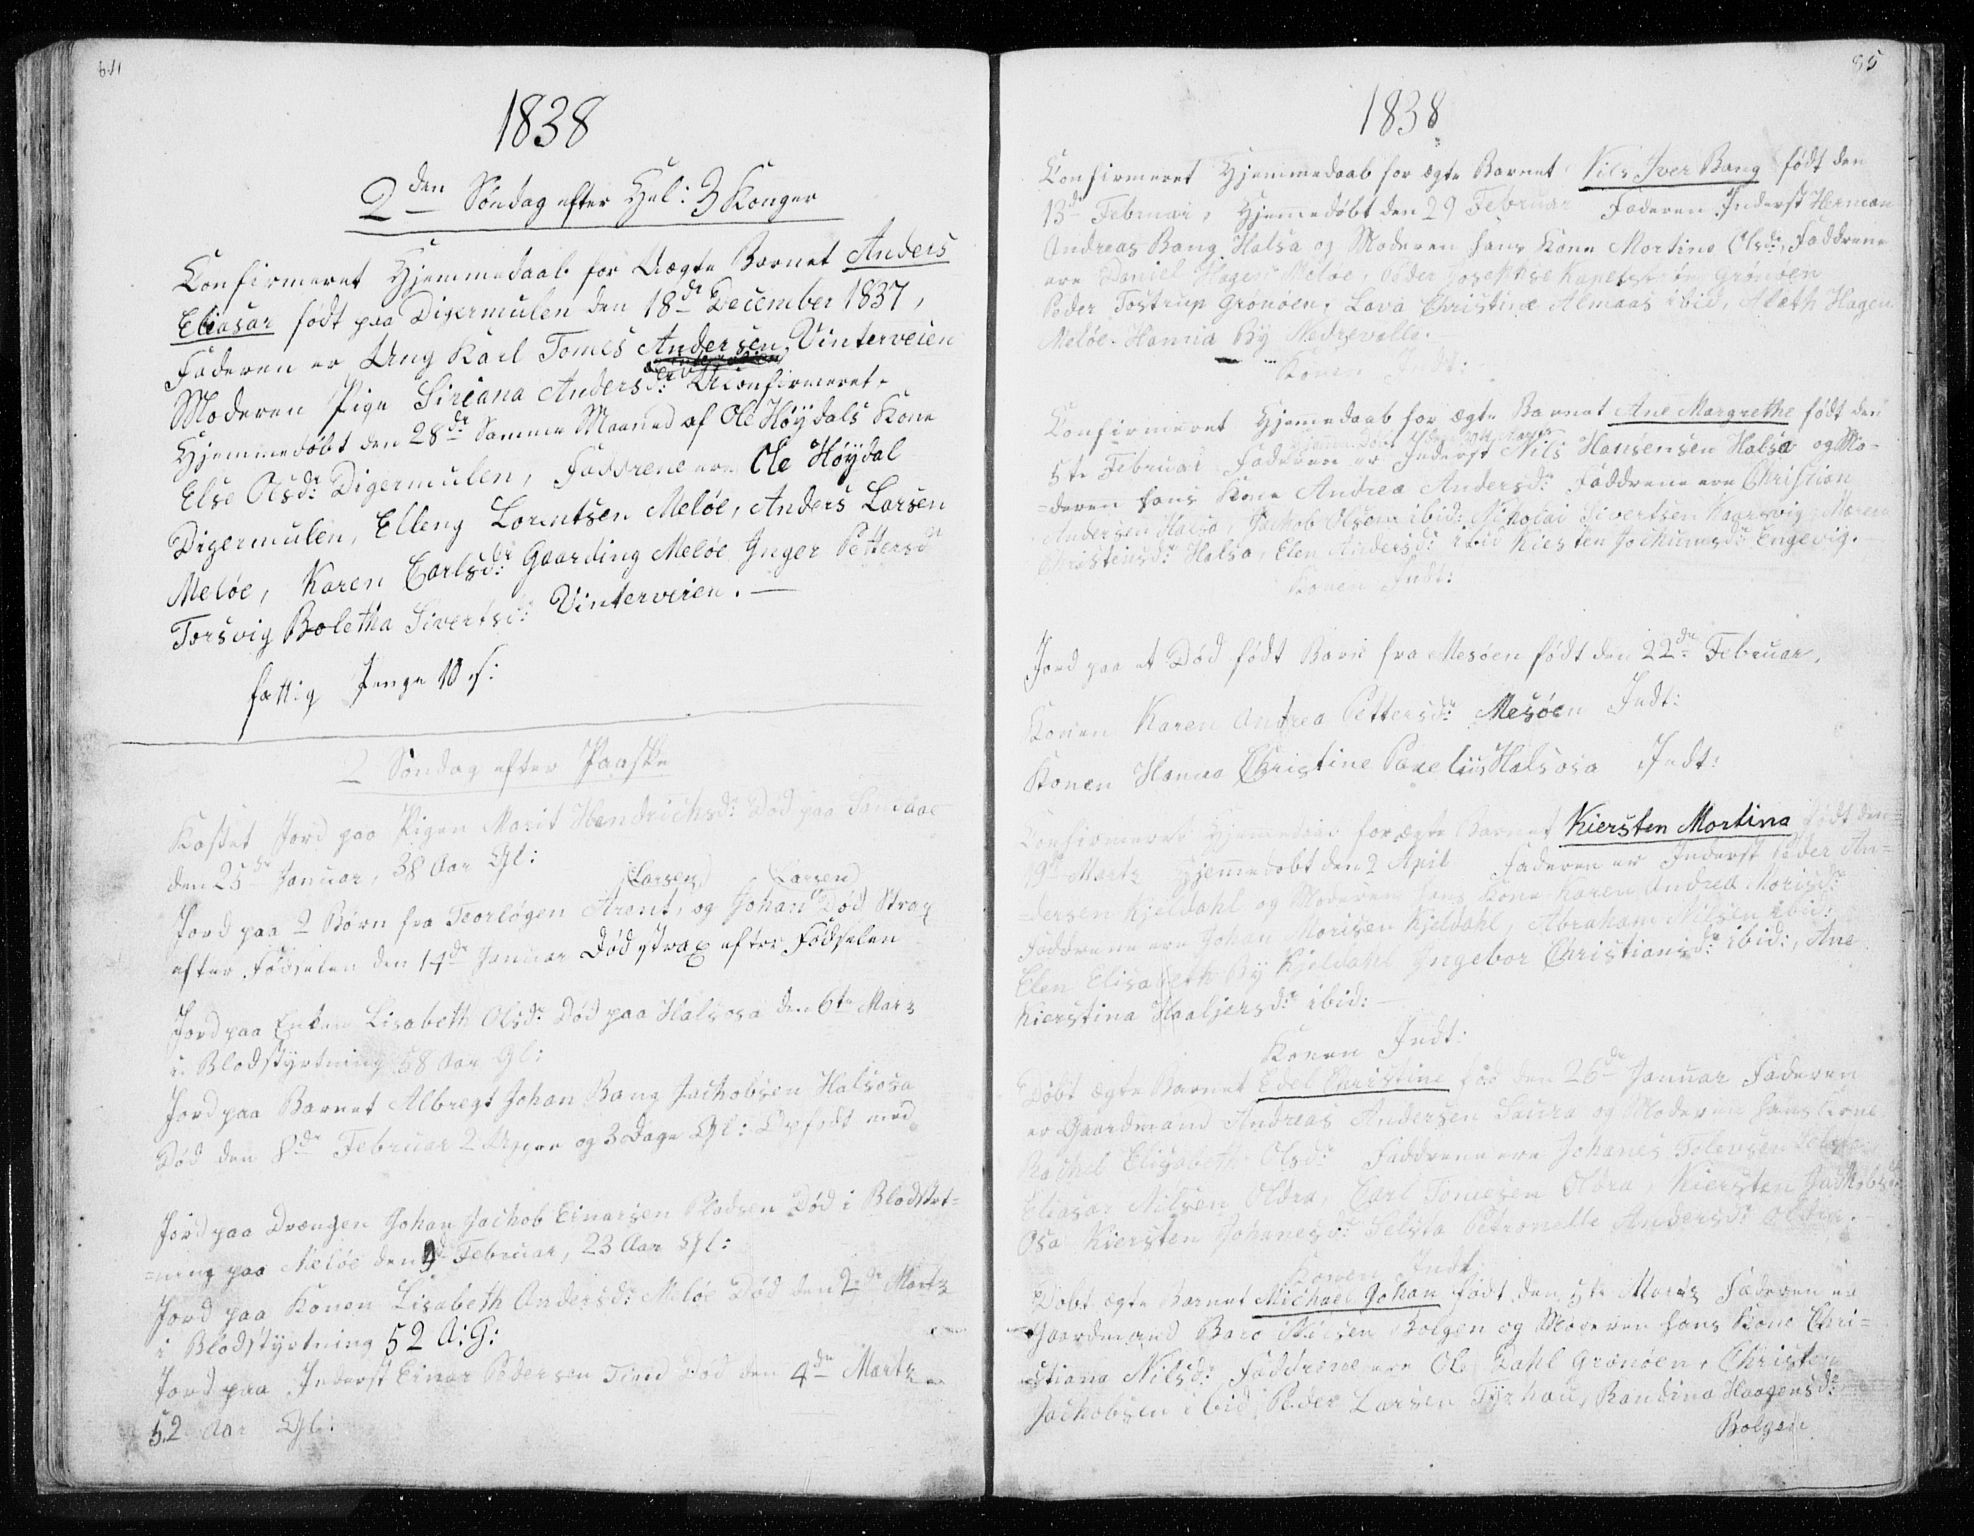 1838
2den Søndag efter Hel: 3 Konger
Confirmeret Hjemmedaab for Uægte Barnet Anders
Eliasar født paa Digermulen den 18de December 1837,
Faderen er Ung Karl Tomes Andersen Vinterveien
Moderen Pige Siriana Andersd: Uconfirmeret.
Hjemmedøbt den 28de Samme Maaned af Ole Høydals Kone
Else Olsdr Digermulen, Faddrene ere Ole Høydal
Digermulen, Elleng Lorentsen Meløe, Anders Larsen
Meløe, Karen Carlsdr: Gaarding Meløe Inger Pettersdr
Torsvig Boletha Sivertsd: Vinterveien. —
fattig Penge 10 s:
2 Søndag efter Paaske
Kastet Jord paa Pigen Marit Hendrichsd: Død paa
den 25de Januar, 38 Aar Gl:
(Larsen) (Larsen)
Jord paa 2 Børn fra Teorløgen Arent, og Johan Død Strax
efter Fødselen den 14de Januar Død strax efter Fødselen
Jord paa Enken Lisabeth Olsdr Død paa Halsosa den 6te Mar
i Blodstyrtning 58 Aar Gl:
Jord paa Barnet Albregt Johan Bang Jachobsen Halsosa
Død den 8de Februar 2 Uger og 3 Dage Gl:
Jord paa Drængen Johan Jachob Einarsen Pladsen Død i Blodstyrt=
=ning paa Meløe den 9de Februar, 23 Aar Gl:
Jord paa Konen Lisabeth Andersd: Meløe Død den 2de Martz
i Blodstyrtning 52 A: G:
Jord paa Inderst Einar Pedersen Død den 4de Martz
52 Aar Gl:
85
1838
Confirmeret Hjemmedaab for ægte Barnet Nils Iver Bang født den
13de Februar, Hjemmedøbt den 29 Februar Faderen Inderst Herman
Andreas Bang Halsa og Moderen hans Kone Martine Olsdr. Faddrene
ere Daniel Hagen Meløe Peder Grønøen
Peder Tostrup Grønøen, Lava Christine Almaas ibid, Aleth Hagen
Meløe. Hanna By Nedrevalle. —
Konen Indt:
Confirmeret Hjemmedaab for ægte Barnet Ane Margrethe født den
5te Februar Faderen er Inderst Nils Hansensen Halsa og Mo=
=deren hans Kone Andrea Andersdr Faddrene ere Christian
Andersen Halsa, Jachob Olsen ibid: Nikolai Sivertsen Maren
Christensd: Halsa, Elen Andersd: ibid Kiersten Jochumsdr Engevig. —
Konen Indt:
Jord paa et Død født Barn fra Mesøen født den 22de Februar,
Konen Karen Andrea Pettersdr Mesøen Indt:
Konen Hanna Christine Paveliis Halsosa Indt:
Confirmeret Hjemmedaab for ægte Barnet Kiersten Mortina født den
19de Martz Hjemmedøbt den 2 April Faderen er Inderst Peder An=
=dersen Kjeldahl og Moderen hans Kone Karen Andrea Morisdr:
Faddrene ere Johan Morisen Kjeldahl, Abraham Nilsen ibid:
Elen Elisabeth By Kjeldahl Ingebor Christiansdr: ibid:, Ane
Kierstina Haaljersdr: ibid: —
Konen Indt:
Døbt ægte Barnet Edel Christine fød den 26de Januar Faderen
er Gaardmand Andreas Andersen Saura og Moderen hans Kone
Rachel Elisabeth Olsdr Faddrene ere Johanes Tolevsen
Eliasar Nilsen Oldra, Carl Tomesen Oldra, Kiersten Jachobsdr
Osa Kiersten Johanesdr Selsta Petronelle Andersdr Oldra. —
Konen Indt:
Døbt ægte Barnet Michael Johan født den 5te Martz Faderen er
Gaardmand Bolgen og Moderen hans Kone Chri=
=stiana Nilsdr: Faddrene ere Ole Dahl Grønøen, Christen
Jachobsen ibid, Peder Larsen Tyrhau, Randina Haagensdr:
Bolgen